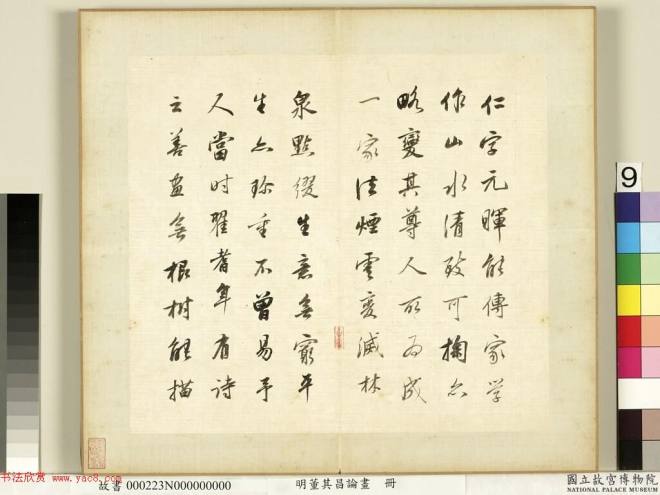 仁字元暉能傳家学
作山水清致可掬亦
略變其尊人所為成
一家法煙雲变滅林
泉點綴生意無窮平
生亦珍重不曾易予
人當时翟耆年有诗
云善畫無根樹能描
9
书法欣赏 www.yac8.com
故書 000223N000000000
明董其昌論畫 冊
國立故宮博物院
NATIONAL PALACE MUSEUM